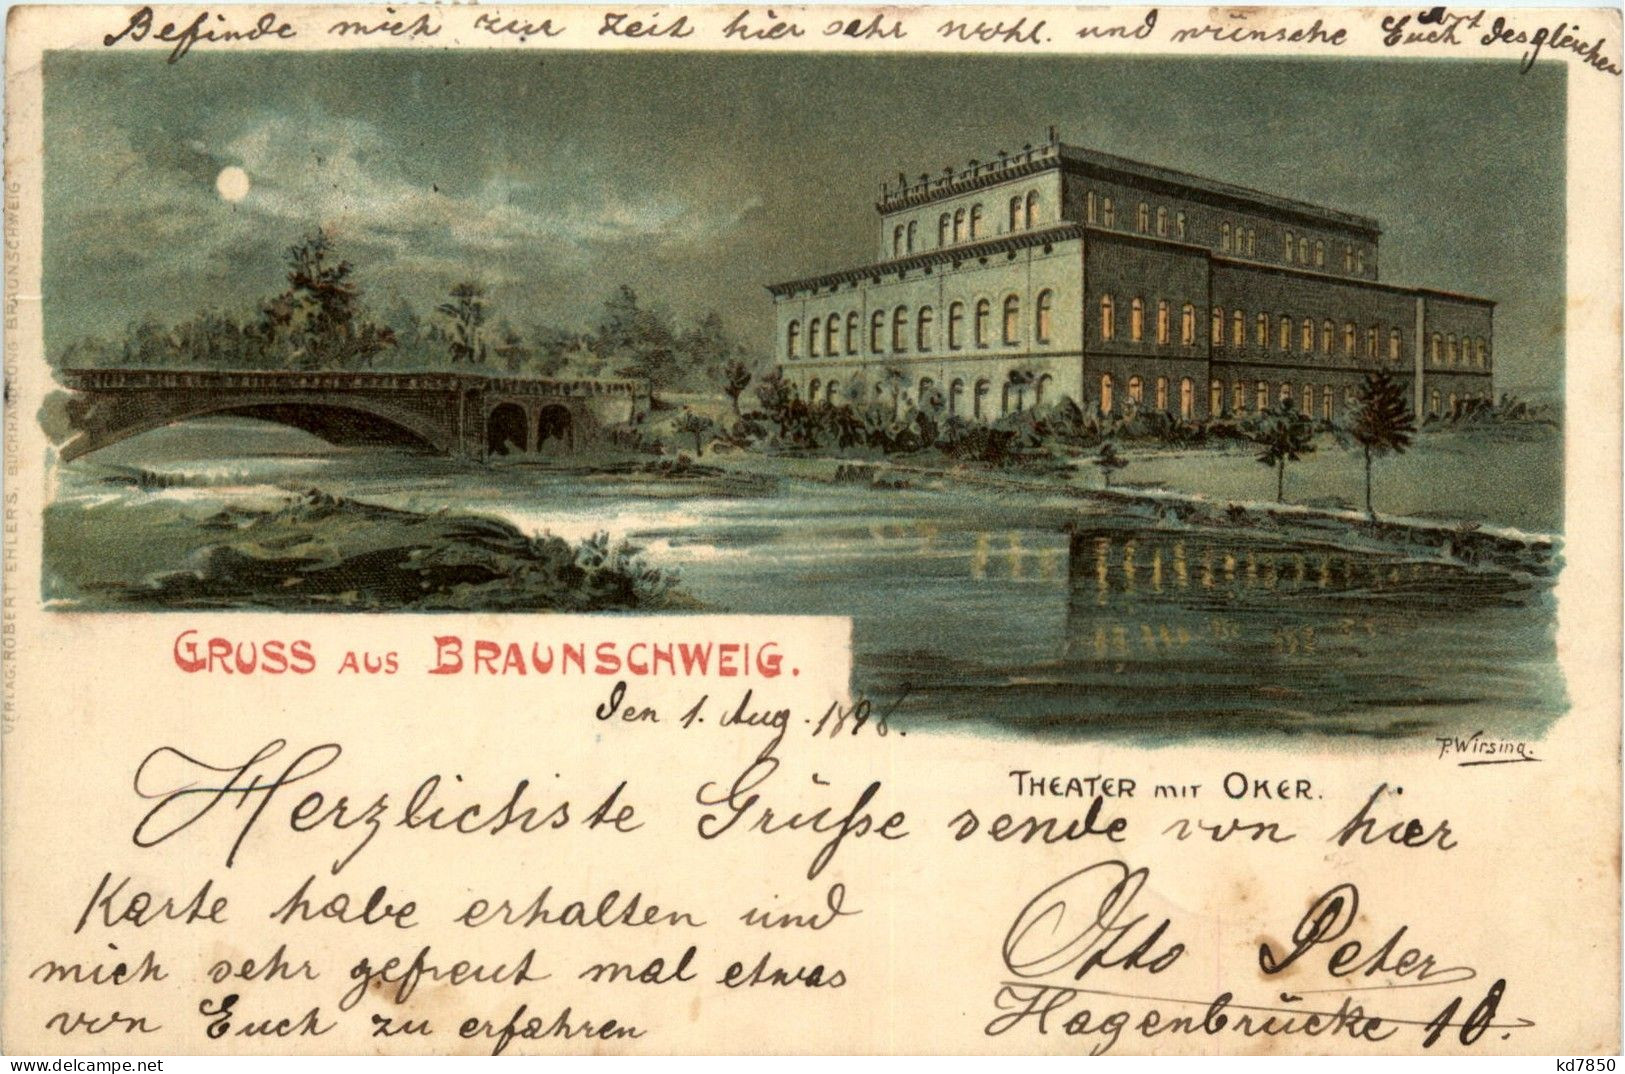 Befinde mich zur Zeit hier sehr wohl. und wünsche Euch desgleichen
VERLAG: ROBERT EHLERS, BUCHHANDLUNG BRAUNSCHWEIG
GRUSS AUS BRAUNSCHWEIG.
Den 1. Aug. 1898.
P. Wirsing.
THEATER MIT OKER.
Herzlichste Grüße sende von hier
Karte habe erhalten und
mich sehr gefreut mal etwas
von Euch zu erfahren
Otto Peter
Hagenbrücke 10.
kd7850